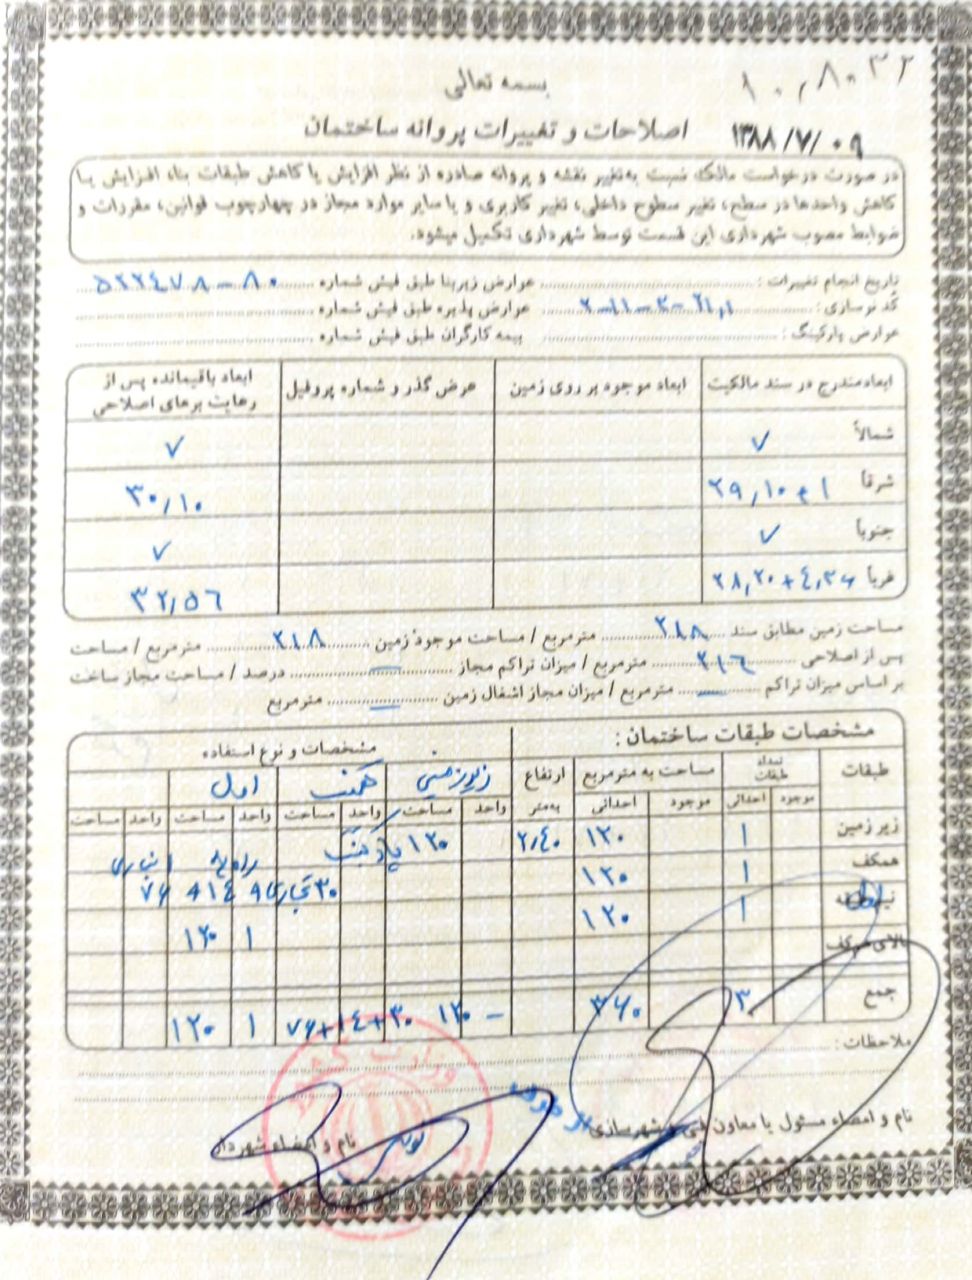 بسمه تعالی
اصلاحات و تغییرات پروانه ساختمان
۱۳۸۸/۷/۰۹
در صورت درخواست مالک نسبت به تغییر نقشه و پروانه صادره از نظر افزایش یا کاهش طبقات بنا، افزایش یا
کاهش واحدها در سطح، تغییر سطوح داخلی، تغییر کاربری و یا سایر موارد مجاز در چهارچوب قوانین، مقررات و
ضوابط مصوب شهرداری این قسمت توسط شهرداری تکمیل میشود.
تاریخ انجام تغییرات : عوارض زیربنا طبق فیش شماره ۵۲۲۴۷۸-۸۰
کد نوسازی : عوارض پذیره طبق فیش شماره
عوارض پارکینگ : بیمه کارگران طبق فیش شماره
ابعاد مندرج در سند مالکیت ابعاد موجود بر روی زمین عرض گذر و شماره پروفیل ابعاد باقیمانده پس از رعایت برهای اصلاحی
شمالاً ۷ ۷
شرقاً ۲۹٫۱۰ ۳۰٫۱۰
جنوباً ۷ ۷
غرباً ۲۸٫۲۰+۴٫۳۶ ۳۲٫۵۶
مساحت زمین مطابق سند ۲۱۸ مترمربع / مساحت موجود زمین ۲۱۸ مترمربع / مساحت
پس از اصلاحی ۲۱۶ مترمربع / میزان تراکم مجاز — درصد / مساحت مجاز ساخت
بر اساس میزان تراکم — مترمربع / میزان مجاز اشغال زمین — مترمربع
مشخصات طبقات ساختمان : مشخصات و نوع استفاده
طبقات تعداد طبقات مساحت به مترمربع ارتفاع زیرزمین همکف اول
موجود احداثی موجود احداثی به متر واحد مساحت واحد مساحت واحد مساحت واحد مساحت
زیر زمین ۱ ۱۲۰ ۲٫۴۰ ۱۲۰ پارکینگ
همکف ۱ ۱۲۰ ۳۰ تجاری ۱۴ راه پله ۷۶ انباری
۱ ۱۲۰ ۱ ۱۲۰
بالای همکف
جمع ۳ ۳۶۰ - ۱۲۰ ۳۰+۱۴+۷۶ ۱ ۱۲۰
ملاحظات :
نام و امضاء مسئول یا معاون فنی و شهرسازی
نام و امضاء شهردار